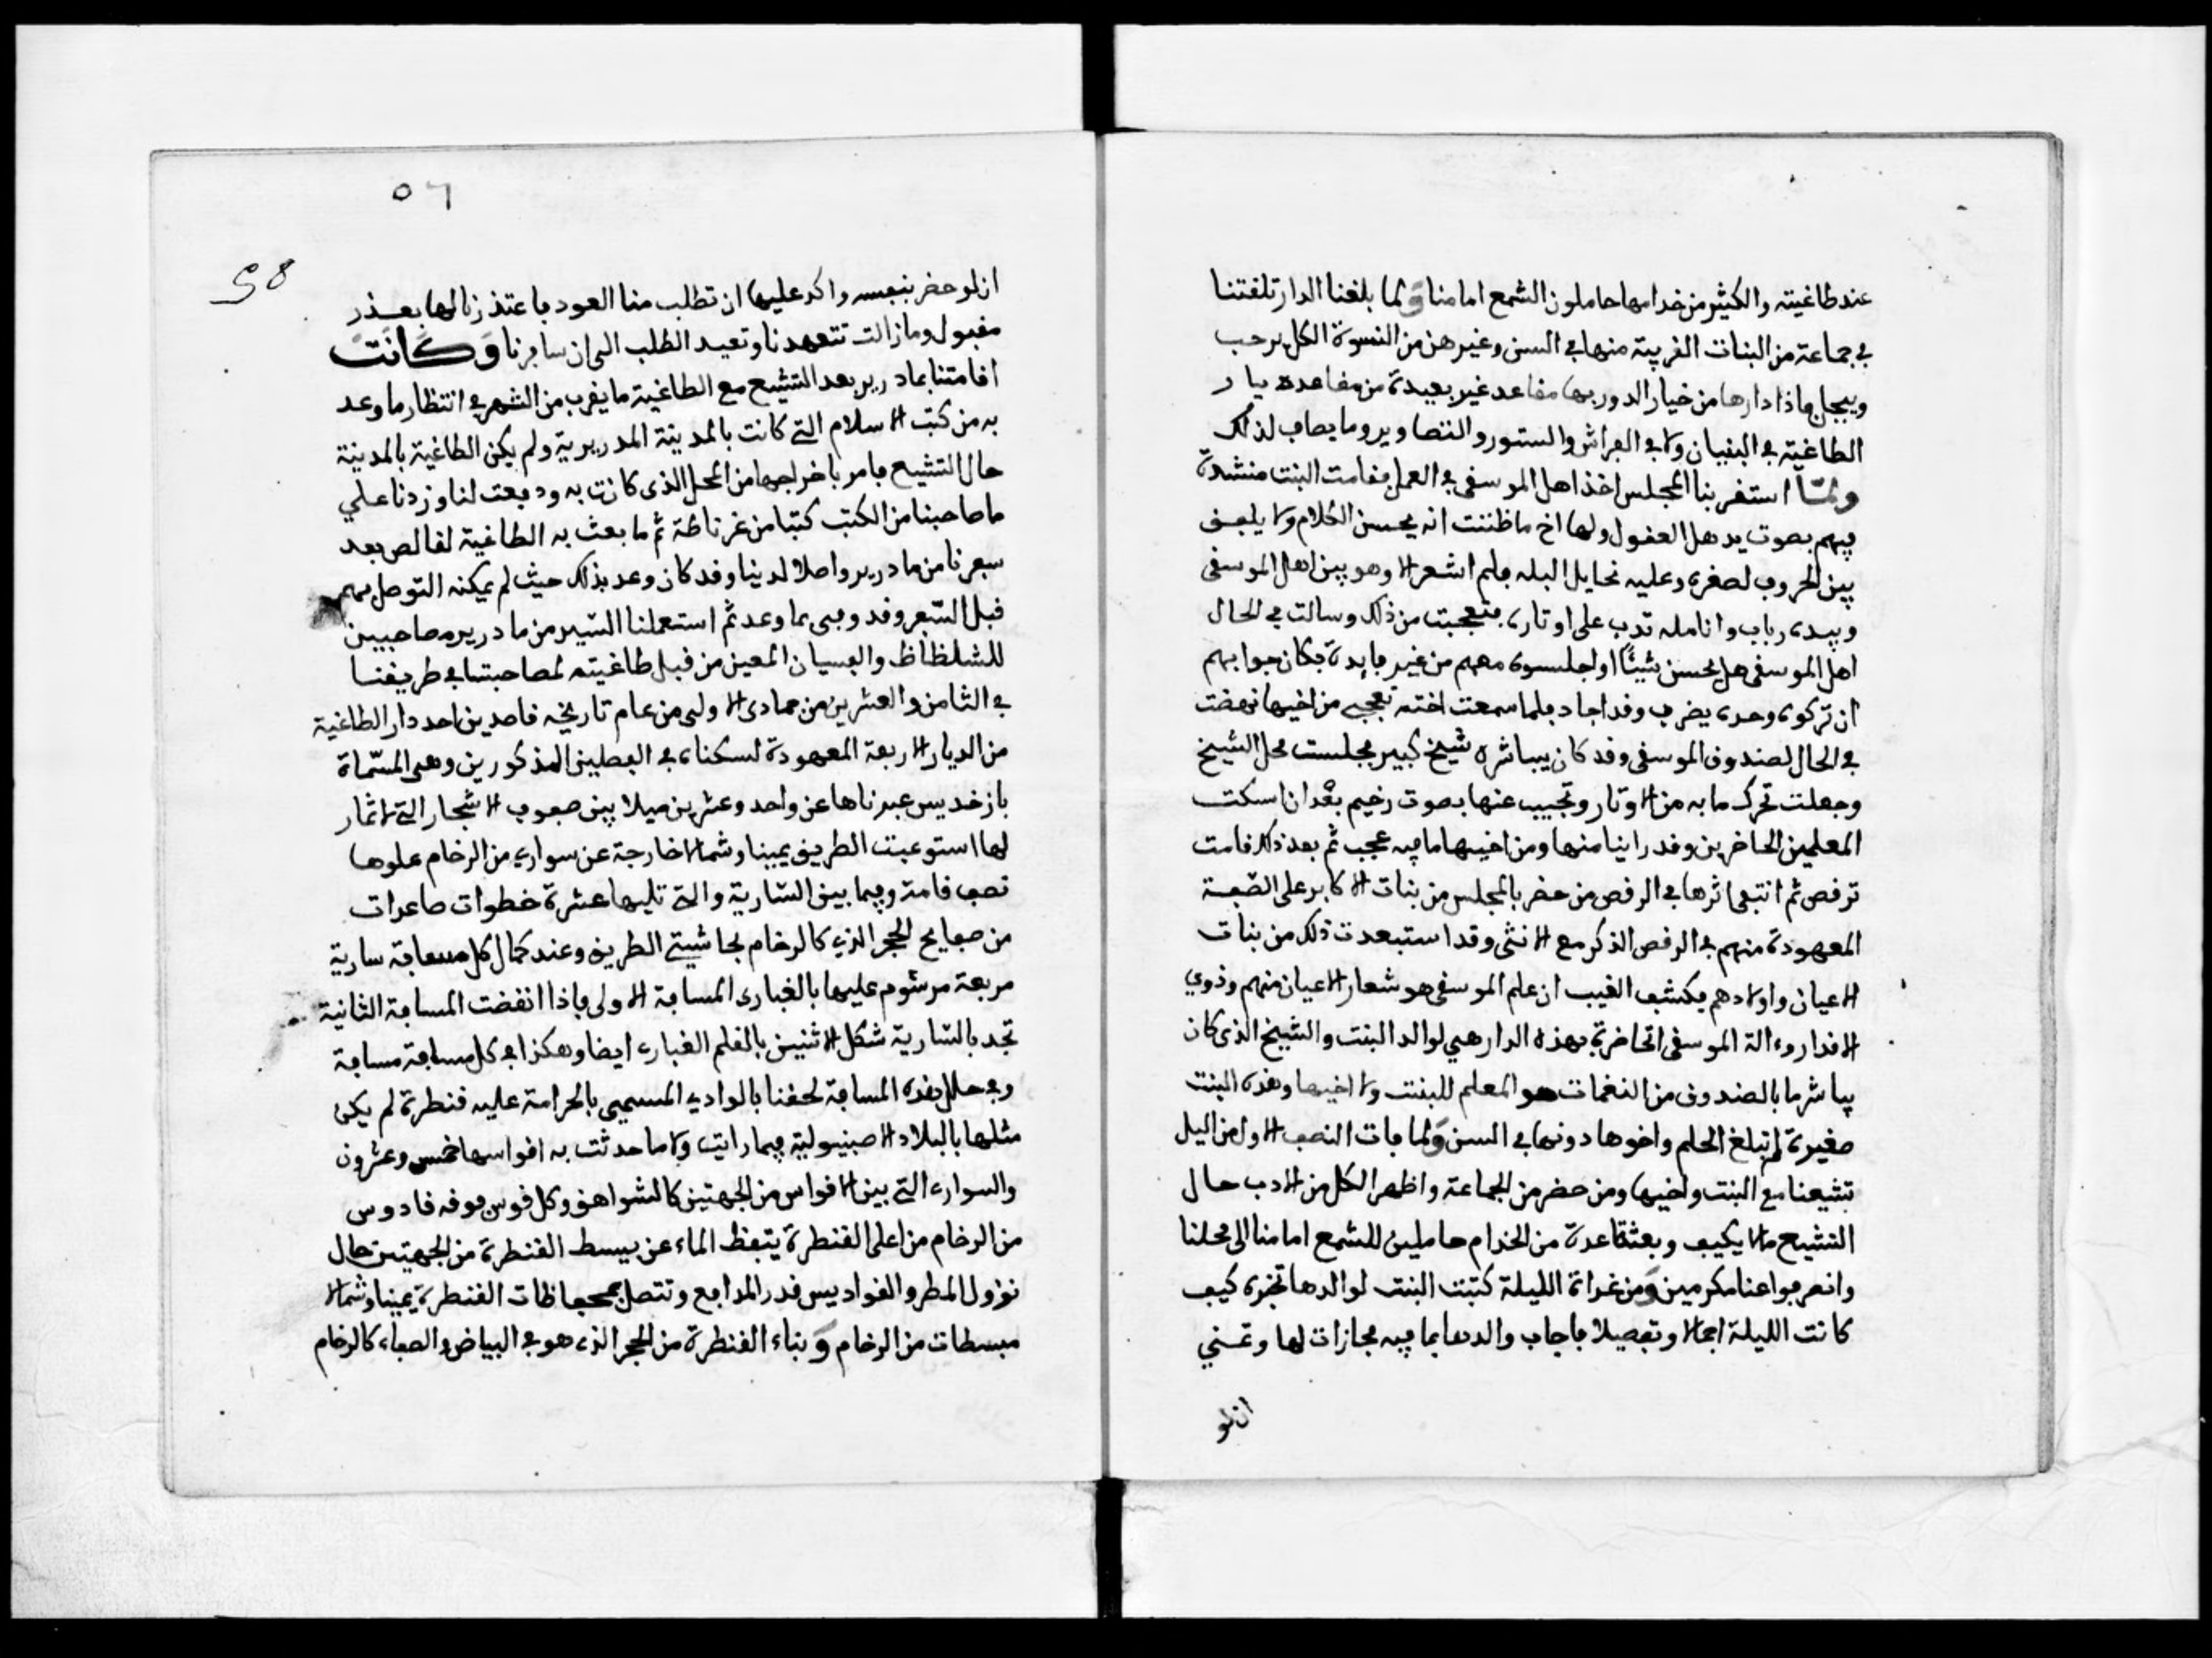 عند طاغيته والكثير من خدامها حاملون الشمع امامنا ولما بلغنا الدار تلقتنا
في جماعة من البنات القريبة منها في السن وغيرهن من النسوة الكل يرحب
ويبجل فاذا دارها من خيار الدور بها مقاعد غير بعيدة من مقاعد ديار
الطاغية في البنيان ولا في الفراش والستور والتصاوير وما يضاف لذلك
ولمّا استقر بنا المجلس اخذ اهل الموسقى في العمل فقامت البنت منشدة
فيهم بصوت يدهل العقول ولها اخ ما ظننت انه يحسن الكلام ولا يلفف
بين الحروف لصغره وعليه نحايل البله فلم اشعر الا وهو بين اهل الموسقى
وبيده رباب وانامله تدب على اوتاره فتعجبت من ذلك وسالت في الحال
اهل الموسقى هل يحسن شيئًا او اجلسوه معهم من غير فايدة فكان جوابهم
ان تركوه وحده يضرب وقد اجاد فلما سمعت اخته تعجبي من اخيها نهضت
في الحال لصندوق الموسقى وقد كان يباشره شيخ كبير فجلست محل الشيخ
وجعلت تحرك ما به من الاوتار وتجيب عنها بصوت رخيم بعْد ان اسكت
المعلمين الحاضرين وقد راينا منها ومن اخيها ما فيه عجب ثم بعد ذلك قامت
ترقص ثم انتبقى اثرها في الرقص من حضر بالمجلس من بنات الاكابر على الصّفة
المعهودة منهم في الرقص الذكر مع الانثى وقد استبعدت ذلك من بنات
الاعيان واولادهم فكشف الغيب ان علم الموسقى هو شعار الاعيان منهم وذوي
الاقدار وءالة الموسقى الحاضرة بهذه الدار هي لوالد البنت والشيخ الذى كان
يباشر ما بالصندوق من النغمات هو المعلم للبنت ولاخيها وهذه البنت
صغيرة لم تبلغ الحلم واخوها دونها في السن ولما فات النصف الاول من اليل
تشيعنا مع البنت واخيها ومن حضر من الجماعة واظهر الكل من الادب حال
التشيع ما لا يكيف وبعثوا عدة من الخدام حاملين للشمع امامنا الى محلنا
وانصرفوا عنا مكرمين ومن غداة الليلة كتبت البنت لوالدها تخبره كيف
كانت الليلة اجمالا وتفصيلا فاجاب والدها بما فيه مجازات لها وتمني
ان لو
٥٦
58
ان لو حضر بنفسه واكد عليها ان تطلب منا العود فاعتذرنا لها بعذر
مقبول وما زالت تتعهدنا وتعيد الطلب الى ان سافرنا وَكَانَتْ
اقامتنا بمادريد بعد التشيع مع الطاغية ما يقرب من الشهر في انتظار ما وعد
به من كتب الاسلام التي كانت بالمدينة المدريرية ولم يكن الطاغية بالمدينة
حال التشيع فامر باخراجها من المحل الذى كانت به ودفعت لنا وزدنا على
ما صاحبنا من الكتب كتبا من غرناطة ثم ما بعث به الطاغية لقالص بعد
سفرنا من مادريد واصلا لدينا وقد كان وعد بذلك حيث لم يمكنه التوصل بهم
قبل السّفر وقد وفى بما وعد ثم استعملنا السّير من مادريد مصاحبين
للشلظاظ والفسيان المعين من قبل طاغيته لمصاحبتنا في طريقنا
في الثامن والعشرين من جمادى الاولى من عام تاريخه قاصدين احد دار الطاغية
من الديار الاربعة المعهودة لسكناه في الفصلين المذكورين وهي المسّماة
بازخديس عبرناها عن واحد وعشرين ميلا بين صفوف الاشجار التي لا ثمار
لها استوعبت الطريق يمينا وشمالا خارجة عن سواري من الرخام علوها
نصف قامة وفيما بين السّارية والتي تليها عشرة خطوات صاعدات
من صفايح الحجر الذي كالرخام بحاشيتي الطريق وعند كمال كل مسافة سارية
مربعة مرشوم عليها بالغبارى المسافة الاولى فاذا انقضت المسافة الثانية
تجد بالسّارية شكل الاثنين بالقلم الغباري ايضا وهكذا في كل مسافة مسافة
وفي خلال هذه المسافة لحقنا بالوادي المسمى بالحرامة عليه قنطرة لم يكن
مثلها بالبلاد الاصبنيولية فيما رايت ولا ما حدثت به اقواسها خمس وعشرون
والسواري التي بين الاقواس من الجهتين كالشواهق وكل قوس فوقه قادوس
من الرخام من اعلى القنطرة يتقظ الماء عن بسيط القنطرة من الجهتين حال
نزول المطر والقواديس قدر المدافع وتتصل بمحجاظات القنطرة يمينا وشمالا
مبسطات من الرخام وَ بناء القنطرة من الحجر الذى هو في البياض والصفاء كالرخام